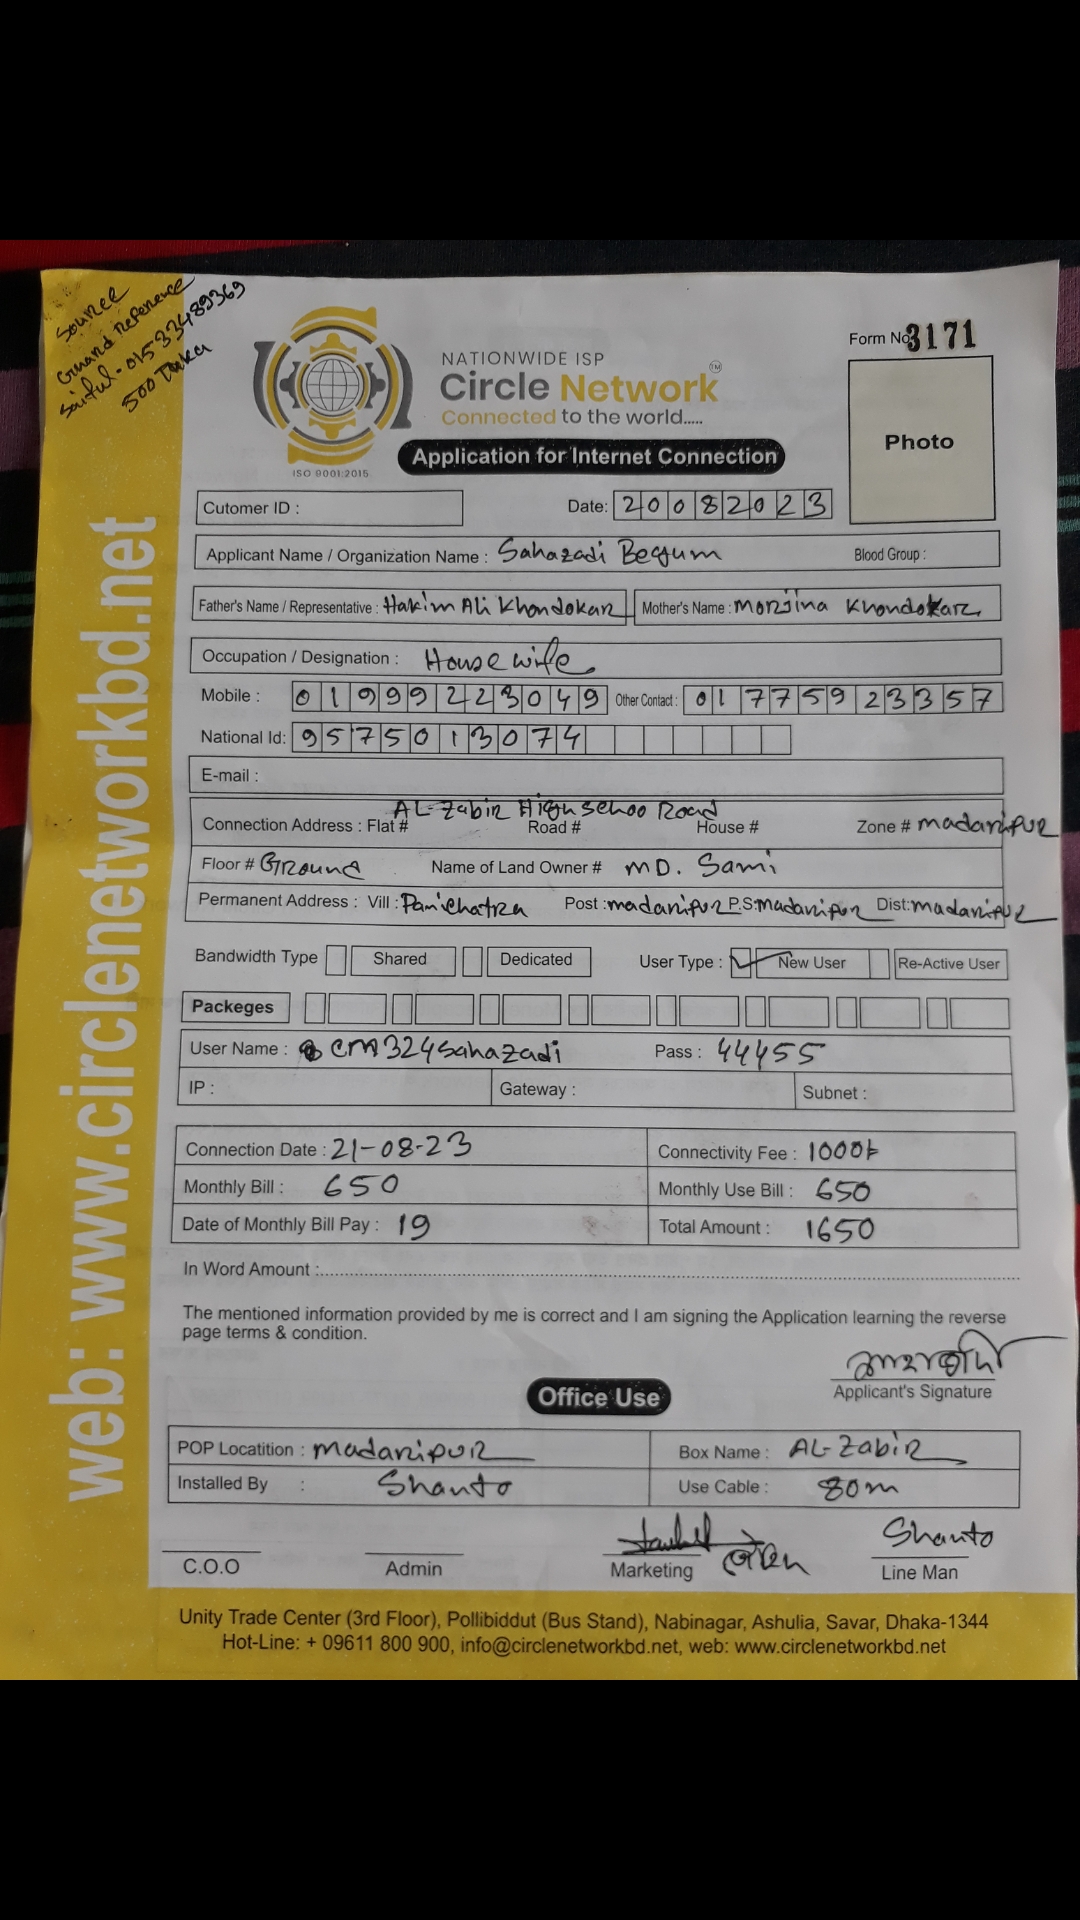 Source
Grand Reference
Saiful - 01533489369
500 Taka
Form No 3171
NATIONWIDE ISP
Circle Network TM
Connected to the world.....
ISO 9001:2015
Application for Internet Connection
Photo
Cutomer ID :
Date: 20082023
Applicant Name / Organization Name : Sahazadi Begum Blood Group :
Father's Name / Representative : Hakim Ali Khondokar Mother's Name : Morjina Khondokar
Occupation / Designation : House wife
Mobile : 01999223049 Other Contact : 01775923357
National Id: 9575013074
E-mail :
AL-Zabir High schoo Road
Connection Address : Flat # Road # House # Zone # madaripur
Floor # Ground Name of Land Owner # MD. Sami
Permanent Address : Vill : Panichatra Post : madaripur P.S: madaripur Dist: madaripur
Bandwidth Type Shared Dedicated User Type : ✓ New User Re-Active User
Packeges
User Name : cm324sahazadi Pass : 44455
IP : Gateway : Subnet :
Connection Date : 21-08-23 Connectivity Fee : 1000৳
Monthly Bill : 650 Monthly Use Bill : 650
Date of Monthly Bill Pay : 19 Total Amount : 1650
In Word Amount :
The mentioned information provided by me is correct and I am signing the Application learning the reverse
page terms & condition.
Applicant's Signature
Office Use
POP Locatition : madaripur Box Name : AL-Zabir
Installed By : Shanto Use Cable : 80m
Shanto
C.O.O Admin Marketing Line Man
Unity Trade Center (3rd Floor), Pollibiddut (Bus Stand), Nabinagar, Ashulia, Savar, Dhaka-1344
Hot-Line: + 09611 800 900, info@circlenetworkbd.net, web: www.circlenetworkbd.net
web: www.circlenetworkbd.net